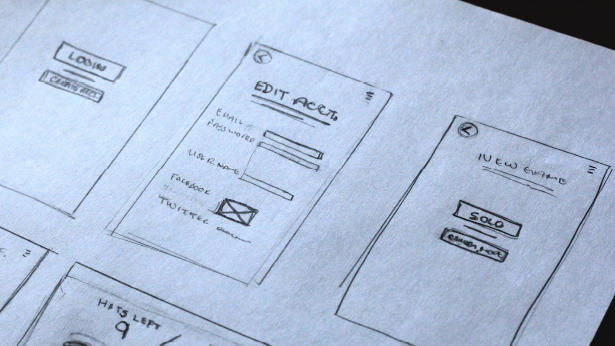 LOGIN
CREATE ACCT.
EDIT ACCT.
EMAIL
PASSWORD
USERNAME
FACEBOOK
TWITTER
NEW GAME
SOLO
HATS LEFT
9